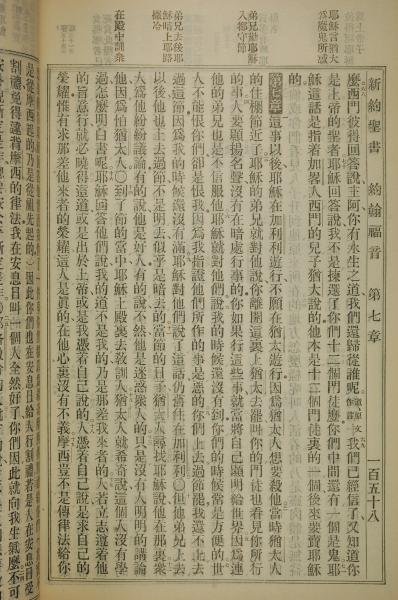 新約聖書　約翰福音　第七章　一百五十八
耶穌言猶大爲魔鬼所惑
弟兄勸耶穌入都守節
弟兄去後耶穌暗上耶路撒冷
在殿中訓衆
麼西門彼得回答說主阿你有永生之道我們還歸從誰呢我們已經信了又知道你
是上帝的聖者耶穌回答說我不是揀選了你們十二個門徒麼你們中間還有一個是鬼耶
穌這話是指着加畧人西門的兒子猶大說的他本是十二個門徒裏的一個後來要賣耶穌
的
第七章這事以後耶穌在加利利遊行不願在猶太遊行因爲猶太人想要殺他當時猶太人
的住棚節近了耶穌的弟兄就對他說你離開這裏上猶太去罷叫你的門徒也看見你所行
的事人要顯揚名聲沒有在暗處行事的你如果行這些事就當將自己顯明給世界因爲連
他的弟兄也是不信服他耶穌就對他們說我的時候還沒有到你們的時候常是方便的世
人不能恨你們卻是恨我因爲我指證他們所作的事是惡的你們上去過節罷我還不上去
過這節因爲我的時候還沒有滿耶穌對他們說了這話仍舊住在加利利但他弟兄上去
以後他也上去過節不是明去似乎是暗去的當節的日子猶太人尋找耶穌說他在那裏衆
人爲他紛紛議論有的說他是好人有的說不然他是迷惑衆人的只是沒有人明明的講論
他因爲怕猶太人到了節的當中耶穌上殿裏去教訓人猶太人就希奇說這個人沒有學
過怎麼明白書呢耶穌回答他們說我的道不是我的乃是那差我來者的人若立志遵着他
的旨意行就必曉得這道或是出於上帝或是我憑着自己說的人憑着自己說是求自己的
榮耀惟有求那差他來者的榮耀這人是眞的在他心裏沒有不義摩西豈不是傳律法給你
是從摩西起的乃是從祖先起的因此你們也在安息日給人行割禮若是人在安息日受
割禮免得違背摩西的律法我在安息日叫一個人全然好了你們因此就向我生氣麼不可